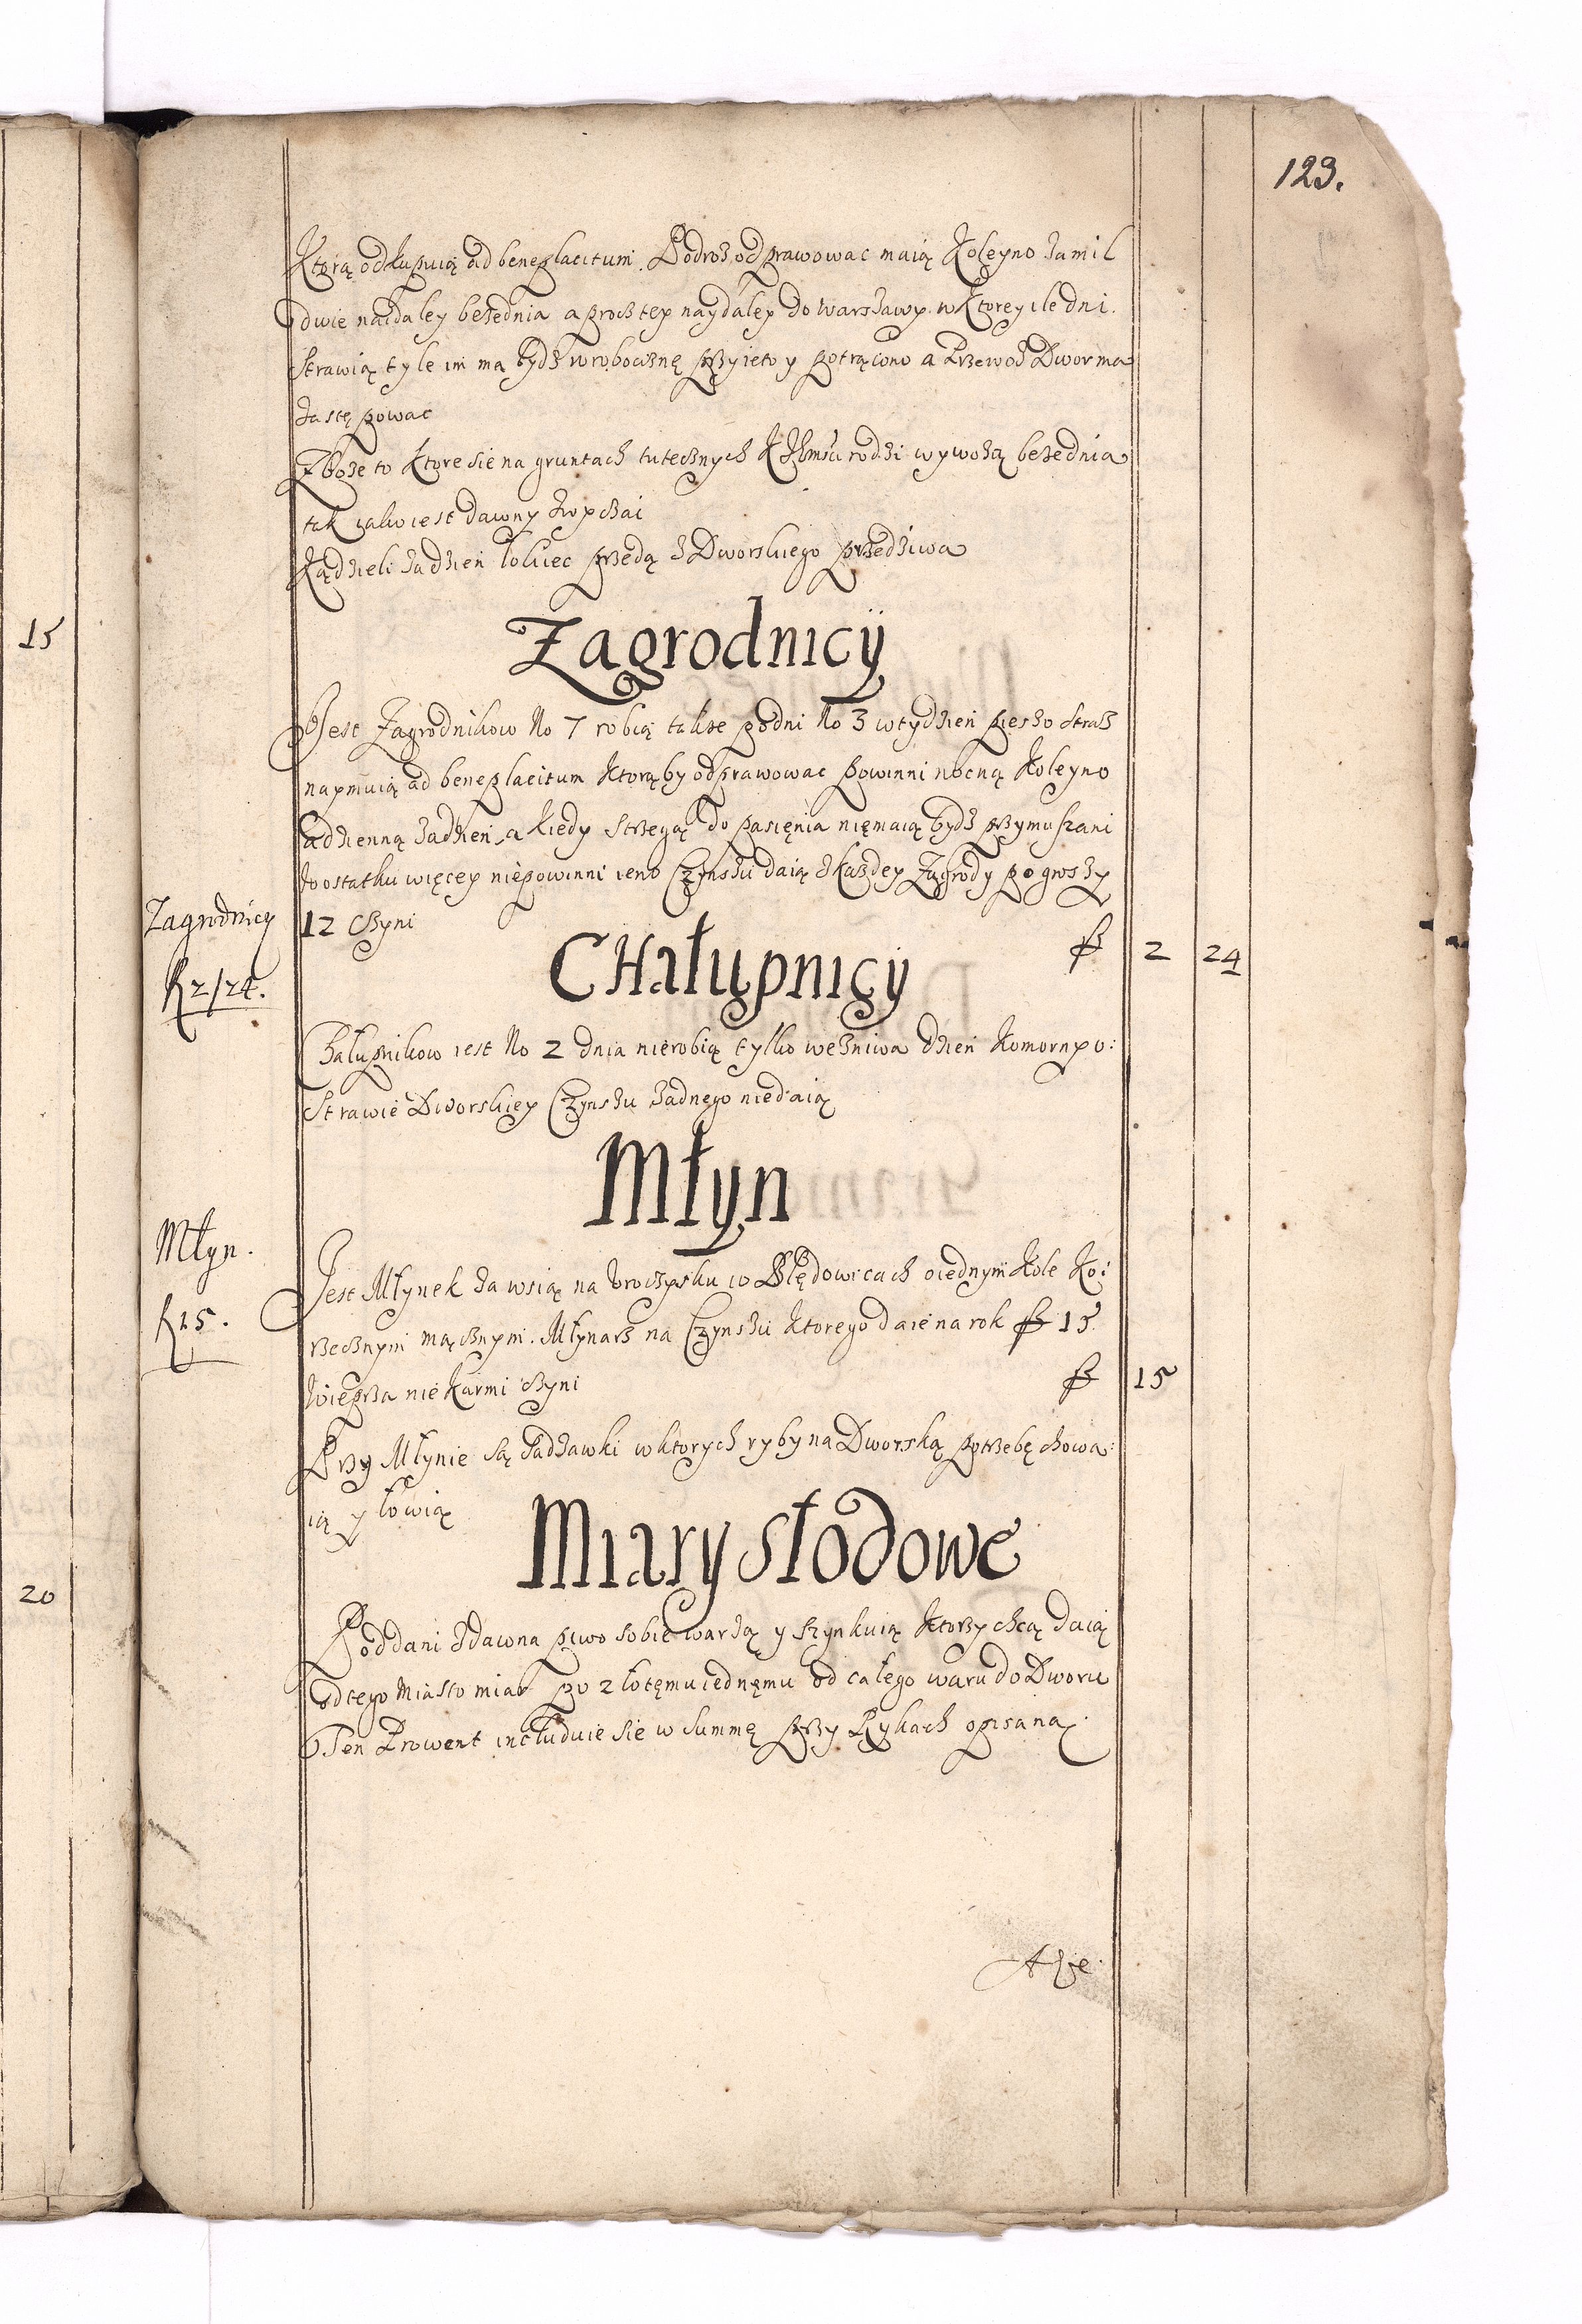 123.
Ktorą odkupuią ad beneplacitum. Podroz odprawowac maią Koleyno za mil
dwie naidaley bezednia a procz tey naydaley do Warszawy. w Ktorey ile dni
strawią tyle im ma bydz w roboczznę przyięto y potrącono a Przewoz Dwor ma
zastępowac
Zboze to Ktore sie na gruntach tutecznych rodzi wywozą bezednia
tak iako iest dawny zwyczai
Kądzieli zadzien łokiec przedą z Dworskiego przedziwa
Zagrodnicÿ
Jest Zagrodnikow No 7 robią takze po dni No 3 w tydzien pieszo straz
naymuią ad beneplacitum Ktorąby odprawowac powinni nocną Koleyno
adzienną zadzien, a kiedy strzegą do pasięnia niemaią bydz przymuszani
do ostatku więcey niepowinni ieno Czynszu daią z Kazdey Zagrody po groszy
12 czyni
fl
2
24
Zagrodnicy
fl 2/24.
CHałupnicy
Chałupnikow iest No 2 dnia nierobią tylko weżniwa dzien Komorny o:
strawie Dworskiey Czynszu żadnego niedaią
Młyn
Młyn.
fl 15.
Jest Młynek za wsią na Uroczysku w Błędowicach oiednym Kole Ko:
rzecznym mącznym. Młynarz na Czynszu Ktorego daie na rok fl 15
Wieprza nie Karmi czyni
fl
15
Przy Młynie są Sadzawki w ktorych ryby na Dworską potrzebę chowa:
ią y łowią
Miary słodowe
Poddani zdawna piwo sobie warzą y szynkuią Ktorzy chcą daią
od tego Miasto miar po złotęmu iednęmu od całego waru do Dworu
Ten Prowent includuie sie w summę przy Rykach opisaną.
15
20